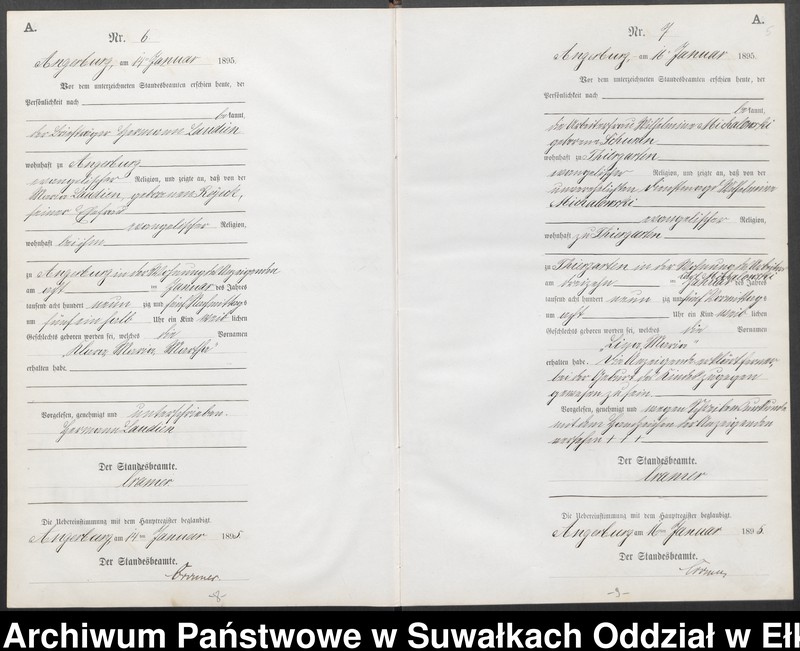 A.
Nr. 6
Angerburg, am 14 Januar 1895.
Vor dem unterzeichneten Standesbeamten erschien heute, der
Persönlichkeit nach
be kannt,
der Hermann Laudien
wohnhaft zu Angerburg
evangelischer Religion, und zeigte an, daß von der
Maria Laudien, geborenen
seiner Ehefrau
evangelischer Religion,
wohnhaft bei ihm
zu Angerburg in der Wohnung des Anzeigenden
am Januar des Jahres
tausend acht hundert neun zig und fünf Nachmittags
um fünf ein halb Uhr ein Kind weib lichen
Geschlechts geboren worden sei, welches die Vornamen
"Clara Maria Martha"
erhalten habe.
Vorgelesen, genehmigt und unterschrieben.
Hermann Laudien
Der Standesbeamte.
Cramer
Die Uebereinstimmung mit dem Hauptregister beglaubigt.
Angerburg, am 14ten Januar 1895
Der Standesbeamte.
Cramer
-8-
A.
Nr. 7
Angerburg, am 16 Januar 1895.
Vor dem unterzeichneten Standesbeamten erschien heute, der
Persönlichkeit nach
be kannt,
die Arbeiterfrau Wilhelmine Michalowski
geborene
wohnhaft zu Thiergarten
evangelischer Religion, und zeigte an, daß von der
unverehelichten Dienstmagd Wilhelmine
Michalowski
evangelischer Religion,
wohnhaft zu Thiergarten
zu Thiergarten in der Wohnung des Arbeiter
Michalowski
am dreizehn ten Januar des Jahres
tausend acht hundert neun zig und fünf Vormittags
um acht Uhr ein Kind weib lichen
Geschlechts geboren worden sei, welches die Vornamen
"Lina Maria"
erhalten habe. Die Anzeigende erklärt ferner,
bei der Geburt des Kindes zugegen
gewesen zu sein.
Vorgelesen, genehmigt und wegen Schreibensunkunde
mit dem Handzeichen der Anzeigenden
versehen + + +
Der Standesbeamte.
Cramer
Die Uebereinstimmung mit dem Hauptregister beglaubigt.
Angerburg am 16ten Januar 1895.
Der Standesbeamte.
Cramer
-9-
Archiwum Państwowe w Suwałkach Oddział w Ełk